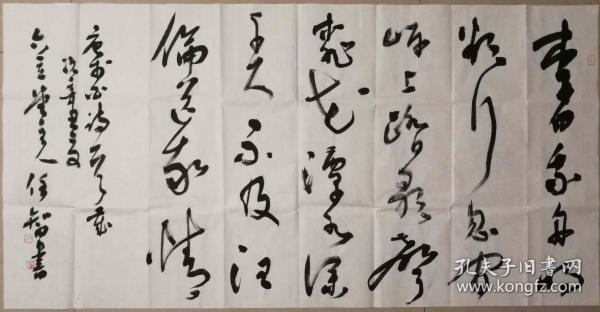 李白乘舟将
欲行忽闻
岸上踏歌声
桃花潭水深
千尺不及汪
伦送我情
唐李白诗
主人任智书
孔夫子旧书网
www.kongfz.com